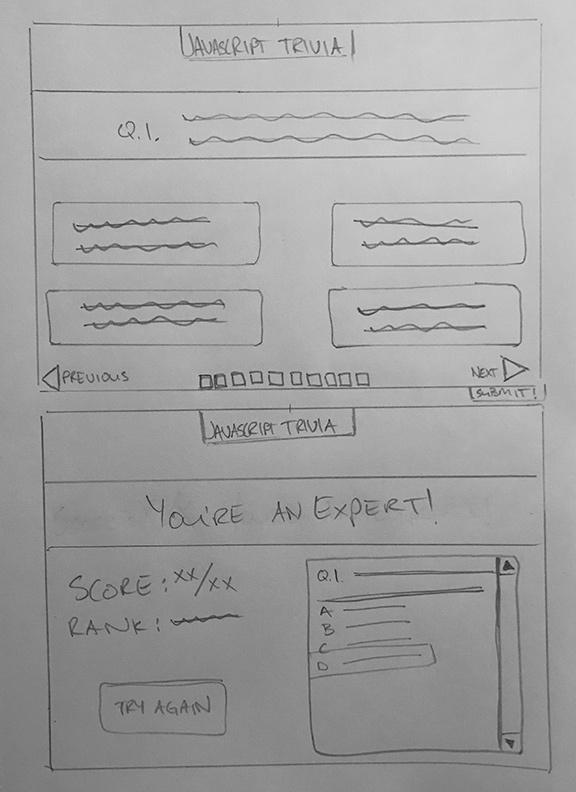 JAVASCRIPT TRIVIA
Q.1.
PREVIOUS
NEXT
SUBMIT!
JAVASCRIPT TRIVIA
YOU'RE AN EXPERT!
SCORE: XX/XX
RANK:
TRY AGAIN
Q.1.
A
B
C
D